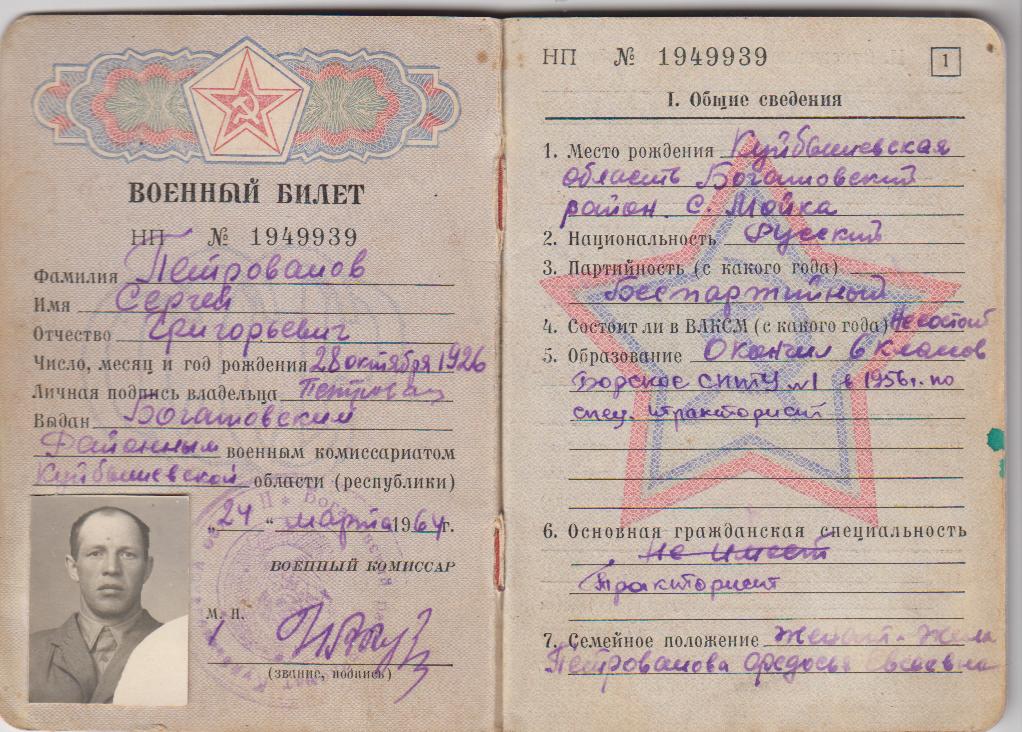 ВОЕННЫЙ БИЛЕТ
НП № 1949939
Фамилия Петрованов
Имя Сергей
Отчество Григорьевич
Число, месяц и год рождения 28 октября 1926
Личная подпись владельца Петрован
Выдан Богатовским
Районным военным комиссариатом
Куйбышевской области (республики)
„24“ марта 1964г.
ВОЕННЫЙ КОМИССАР
М. П.
(звание, подпись)
НП № 1949939
1
I. Общие сведения
1. Место рождения Куйбышевская
область Богатовский
район с. Мойка
2. Национальность Русский
3. Партийность (с какого года)
Беспартийный
4. Состоит ли в ВЛКСМ (с какого года) Не состоит
5. Образование Окончил 6 классов
СПТУ №1 в 1956г. по
спец. тракторист
6. Основная гражданская специальность
Не имеет
Тракторист
7. Семейное положение Женат - жена
Петрованова Федосья Евсеевна